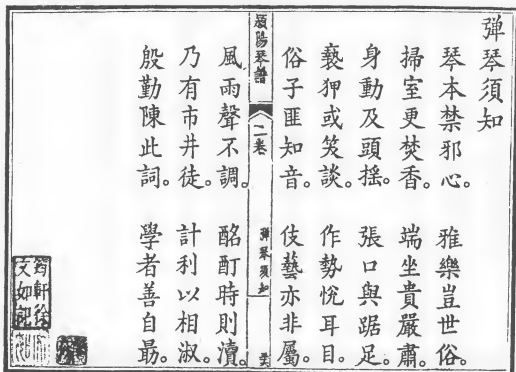 彈琴須知
琴本禁邪心。雅樂豈世俗。
掃室更焚香。端坐貴嚴肅。
身動及頭搖。張口與踞足。
褻狎或笑談。作勢悅耳目。
俗子匪知音。伎藝亦非屬。
潁陽琴譜
二卷
彈琴須知
風雨聲不調。酩酊時則瀆。
乃有市井徒。計利以相淑。
殷勤陳此詞。學者善自勗。